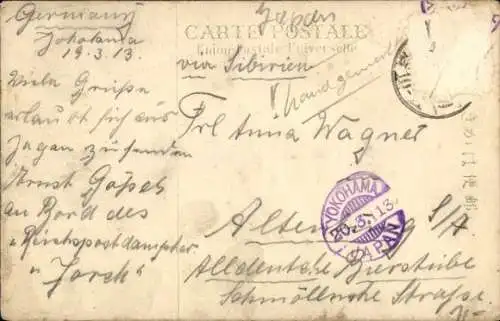 Germany
Japan
Yokohama
19.3.13.
CARTE POSTALE
Union Postale Universelle
via Sibirien
Viele Grüße
erlaubt sich aus
Japan zu senden
Ernst Göpel
an Bord des
Reichspostdampfer
"Yorck"
Frl. Anna Wagner
Altenburg S/A
Alldeutsche Bierstube
Schmöllnsche Straße
YOKOHAMA
20.3.13.
JAPAN